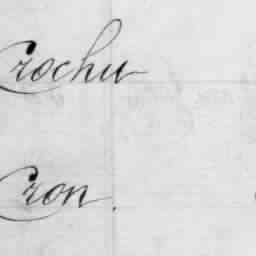 Crochu
Cron.